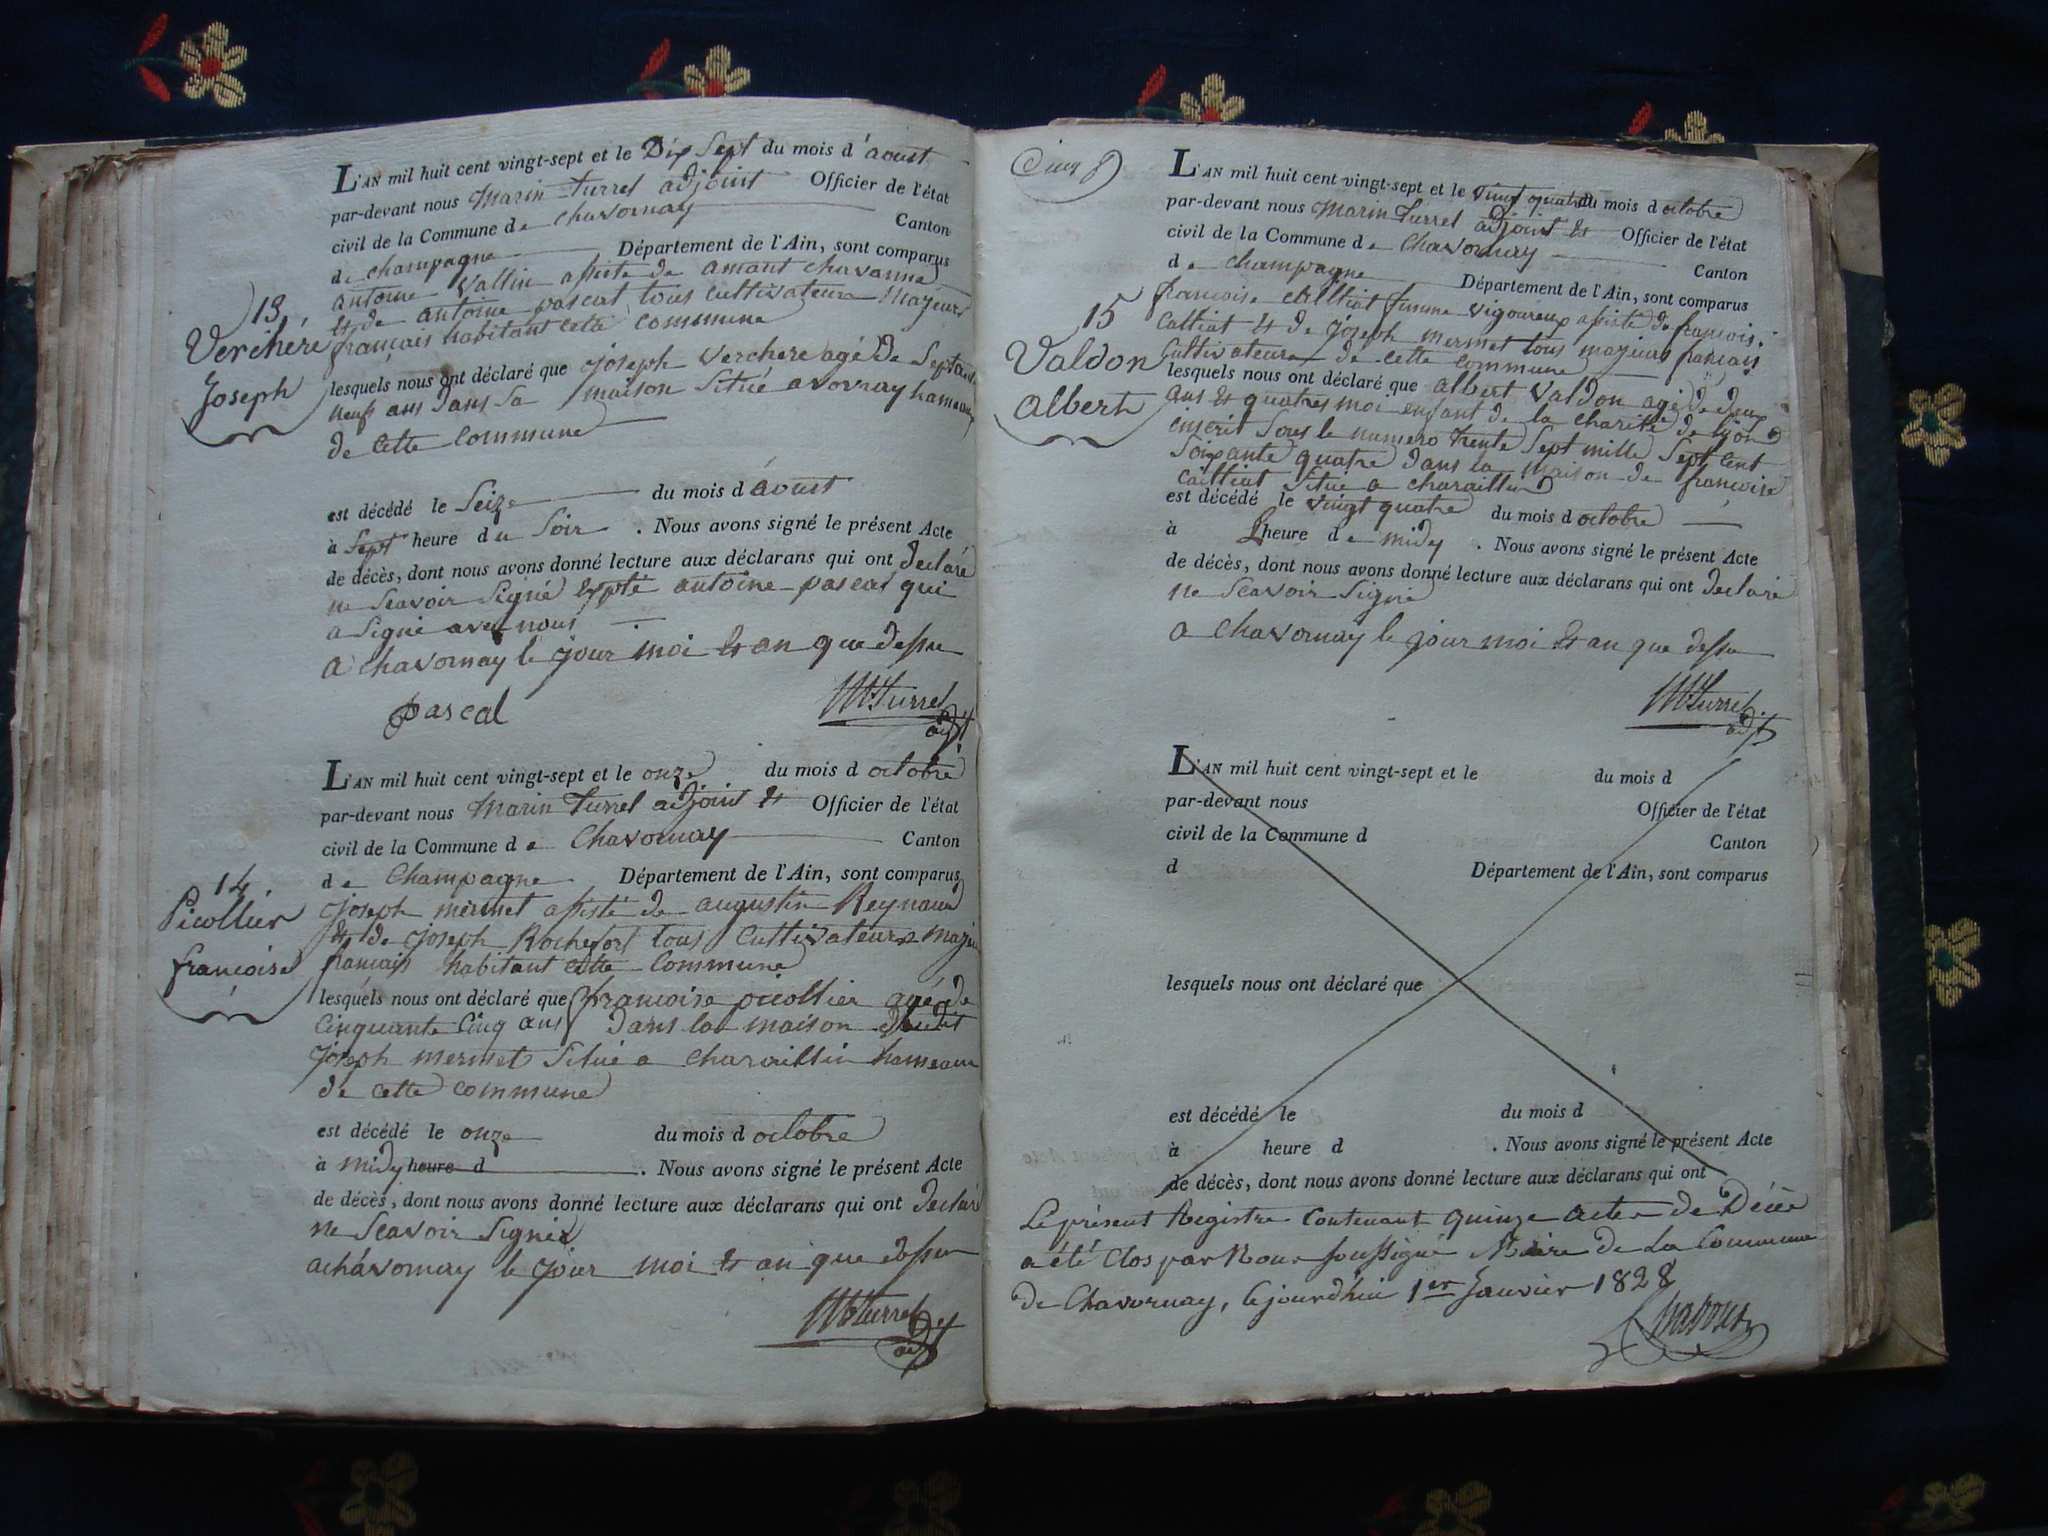 L'AN mil huit cent vingt-sept et le Dix Sept du mois d'aoust
par-devant nous Marin Turrel adjoint Officier de l'état
civil de la Commune de Chavornay Canton
de Champagne Département de l'Ain, sont comparus
antoine Vallin assisté de amant chavanne
& de antoine pascal tous cultivateurs majeurs
français habitant cette commune
13
Verchére
Joseph
lesquels nous ont déclaré que joseph Verchere agé de Septante
neuf ans dans Sa maison Situé a vovray hameau
de cette commune
est décédé le Seize du mois d'avust
à Sept heure du Soir . Nous avons signé le présent Acte
de décès, dont nous avons donné lecture aux déclarans qui ont declaré
ne Scavoir Signé expté antoine pascal qui
a Signé avec nous
a chavornay le jour moi & an que dessu
Pascal
M Turrel
adjt
L'AN mil huit cent vingt-sept et le onze du mois d octobre
par-devant nous Marin Turrel adjoint & Officier de l'état
civil de la Commune de Chavornay Canton
de Champagne Département de l'Ain, sont comparus
14
Picollier
françoise
joseph mermet assisté de augustin Reynaud
& de joseph Rochefort tous Cultivateurs majeu
français habitant cette Commune
lesquels nous ont déclaré que francoise picollier agé de
Cinquante Cinq ans dans la maison dudit
joseph mermet Situé a charaillin hameau
de cette commune
est décédé le onze du mois d octobre
à midy heure d . Nous avons signé le présent Acte
de décès, dont nous avons donné lecture aux déclarans qui ont declaré
ne Scavoir Signer
a chavornay le jour moi & an que dessu
M Turrel
adjt
Cinq
L'AN mil huit cent vingt-sept et le vingt quatre du mois d octobre
par-devant nous Marin Turrel adjoint & Officier de l'état
civil de la Commune de Chavornay Canton
de Champagne Département de l'Ain, sont comparus
francoise Calliat femme vigoureux assisté de francois
Calliat & de joseph mermet tous majeurs français
Cultivateurs de cette commune
15
Valdon
albert
lesquels nous ont déclaré que albert Valdon agé de deux
ans & quatres moi enfant de la charité de lyon
inscrit Sous le numero trente Sept mille Sept cent
Soixante quatre dans la maison de francoise
Calliat Situé a charaillin
est décédé le vingt quatre du mois d octobre
à heure de midy . Nous avons signé le présent Acte
de décès, dont nous avons donné lecture aux déclarans qui ont declaré
ne Scavoir Signé
a chavornay le jour moi & an que dessu
M Turrel
adjt
L'AN mil huit cent vingt-sept et le du mois d
par-devant nous Officier de l'état
civil de la Commune d Canton
d Département de l'Ain, sont comparus
lesquels nous ont déclaré que
est décédé le du mois d
à heure d . Nous avons signé le présent Acte
de décès, dont nous avons donné lecture aux déclarans qui ont
Le présent Registre Contenant quinze actes de Décès
a été Clos par Nous soussigné Maire de La Commune
de Chavornay, cejourd'hui 1er Janvier 1828